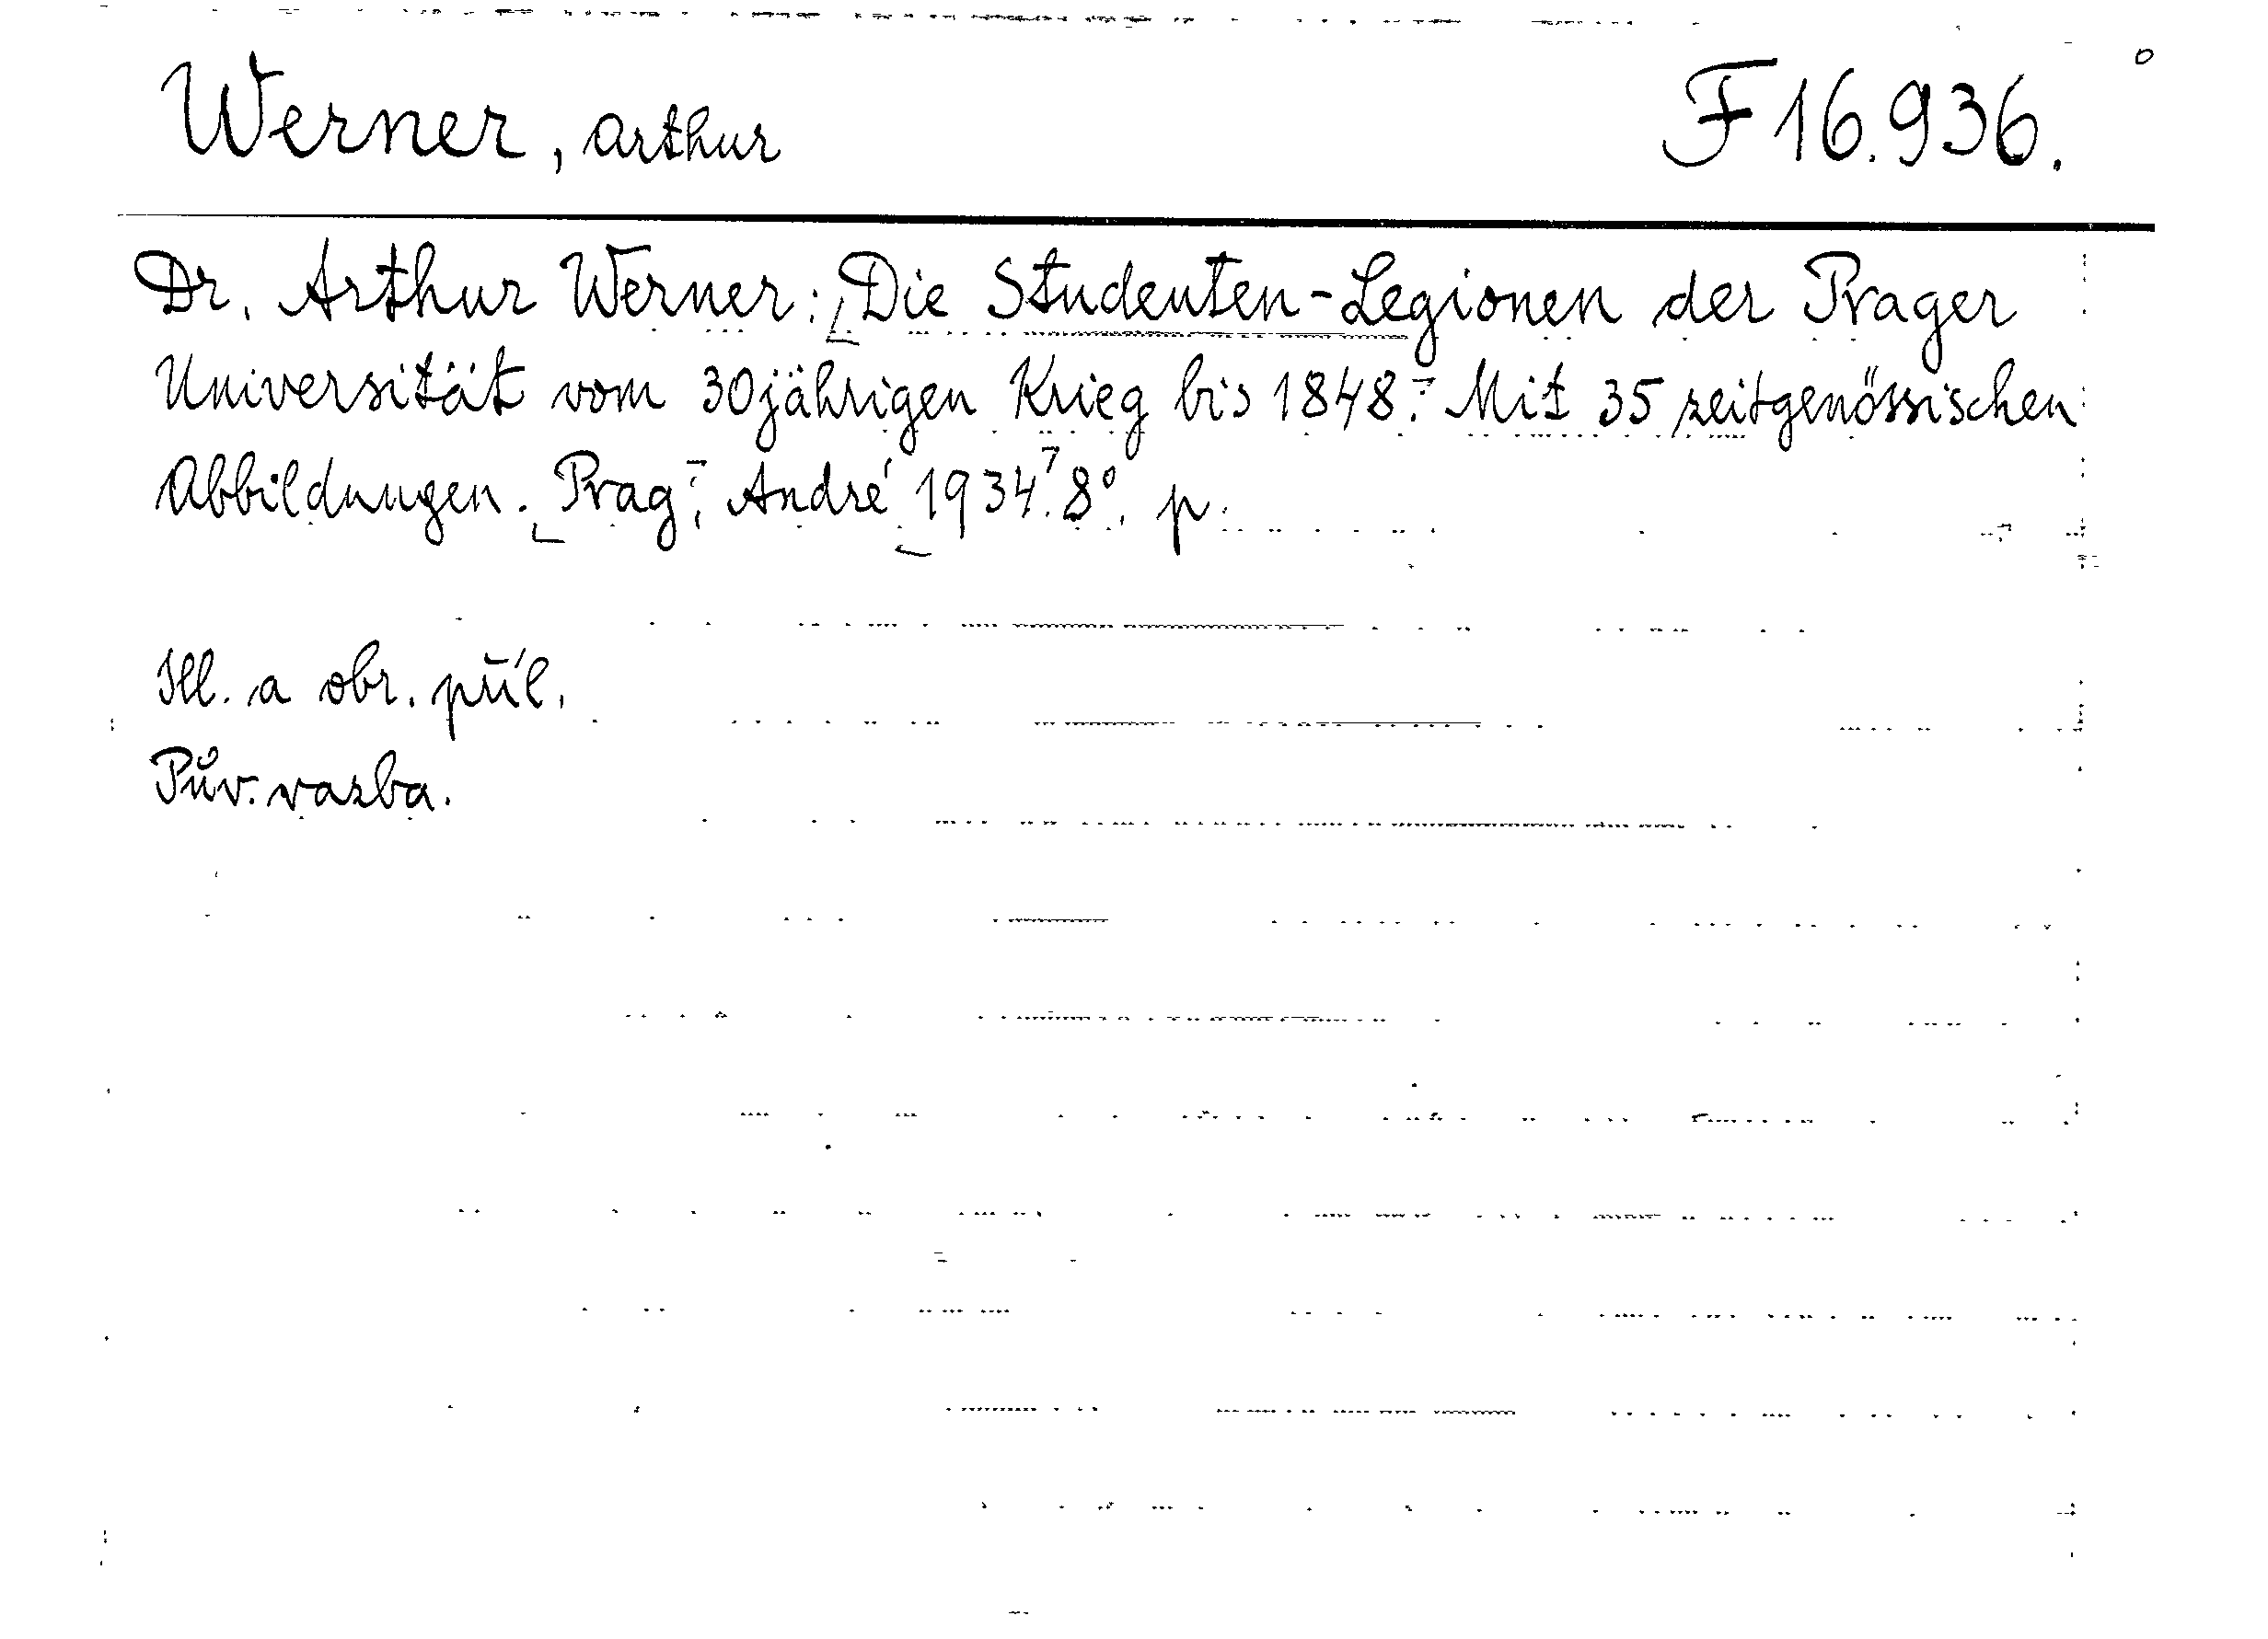 Werner, Arthur F 16.936.
Dr. Arthur Werner: Die Studenten-Legionen der Prager
Universität vom 30jährigen Krieg bis 1848. Mit 35 zeitgenössischen
Abbildungen. Prag, André 1934. 8°. p.
Ill. a obr. příl.
Pův. vazba.